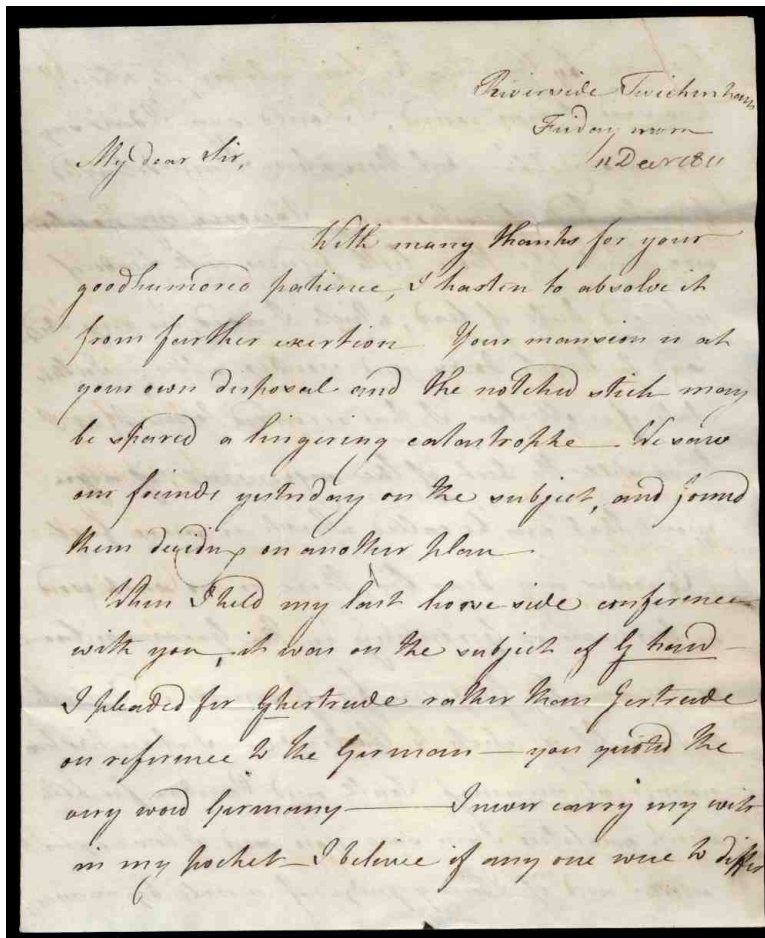 Riverside Twickenham
Friday morn
11 Decr 1811
My dear Sir,
With many thanks for your
goodhumored patience, I hasten to absolve it
from further exertion Your mansion is at
your own disposal and the notched stick may
be spared a lingering catastrophe We saw
our friends yesterday on the subject, and found
them deciding on another plan
When I held my last horse side conference
with you, it was on the subject of G hard
I pleaded for Ghertrude rather than Gertrude
on reference to the German — you quoted the
very word Germany — I never carry my wits
in my pocket — I believe if any one were to differ